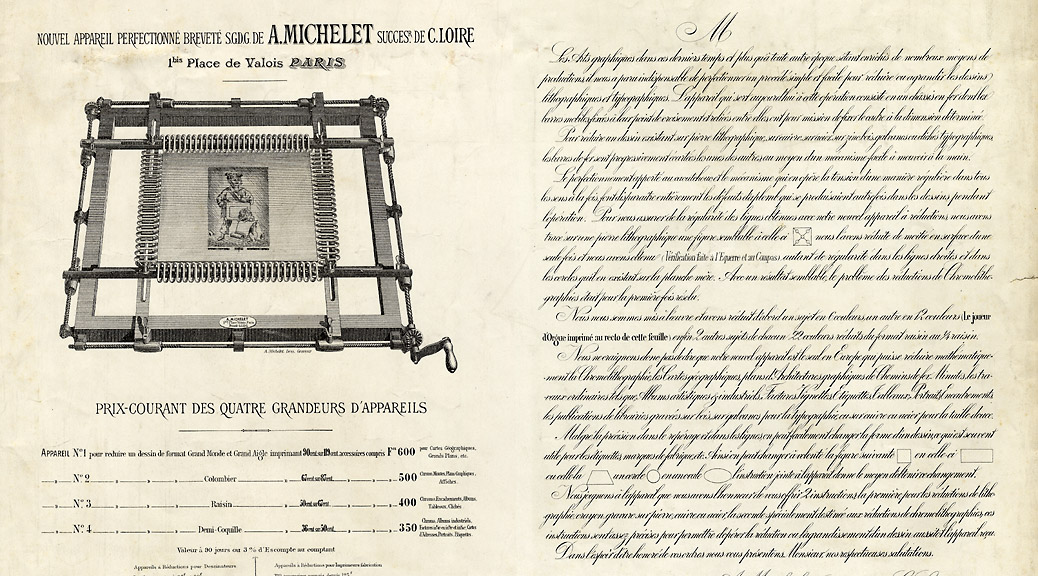 NOUVEL APPAREIL PERFECTIONNÉ BREVETÉ S.G.D.G. DE A. MICHELET SUCCESR. DE C. LOIRE
1bis Place de Valois PARIS
A. MICHELET
PRIX-COURANT DES QUATRE GRANDEURS D'APPAREILS
APPAREIL No 1 pour réduire un dessin de format Grand Monde et Grand Aigle imprimant accessoires compris Fcs 600 pour Cartes Géographiques, Grands Plans, etc.
No 2 Colombier 500 Affiches.
No 3 Raisin 400 Tableaux, Clichés
No 4 Demi-Coquille 350
Valeur à 90 jours ou 3% d'Escompte au comptant
Appareils à Réductions pour Dessinateurs
Appareils à Réductions pour Imprimeurs fabrication
M
Les Arts graphiques dans ces derniers temps et plus qu'à toute autre époque s'étant enrichis de nombreux moyens de
production, il nous a paru indispensable de perfectionner un procédé simple et facile pour réduire ou agrandir les dessins
lithographiques et typographiques. L'appareil qui sert aujourd'hui à cette opération consiste en un chassis en fer dont les
barres mobiles fixées à leur point de croisement et reliées entre elles ont pour mission de fixer le cadre à la dimension déterminée.
Pour réduire un dessin existant sur pierre lithographique, sur cuivre, sur acier, sur zinc, bois, galvanos ou clichés typographiques,
les barres de fer sont progressivement écartées les unes des autres au moyen d'un mécanisme facile à mouvoir à la main.
Le perfectionnement apporté au caoutchouc et le mécanisme qui en opère la tension d'une manière régulière dans tous
les sens à la fois, font disparaître entièrement les défauts d'aplomb qui se produisaient autrefois dans les dessins pendant
l'opération. Pour nous assurer de la régularité des lignes obtenues avec notre nouvel appareil à réductions, nous avons
tracé sur une pierre lithographique une figure semblable à celle-ci nous l'avons réduite de moitié en surface d'une
seule fois et nous avons obtenu (Vérification faite à l'Equerre et au Compas) autant de régularité dans les lignes droites et dans
les cercles qu'il en existait sur la planche mère. Avec un résultat semblable, le problème des réductions de Chromolitho-
graphies était pour la première fois résolu.
Nous nous sommes mis à l'œuvre et avons réduit d'abord un sujet en couleurs, un autre en 12 couleurs (Le joueur
d'Orgue imprimé au recto de cette feuille) enfin 2 autres sujets de chacun 22 couleurs réduits du format raisin au ¼ raisin.
Nous ne craignons donc pas de dire que notre nouvel appareil est le seul en Europe qui puisse réduire mathématique-
ment la Chromolithographie, les Cartes géographiques, plans d'Architectures, graphiques de Chemins de fer, Minutes, les tra-
vaux ordinaires tels que, Albums artistiques & industriels, Factures, Vignettes, Etiquettes, Tableaux, Portraits, Encadrements,
les publications de librairies gravées sur bois, sur galvanos, pour la typographie, ou sur cuivre ou acier pour la taille douce.
Malgré la précision dans le repérage et dans les lignes on peut facilement changer la forme d'un dessin, ce qui est souvent
utile pour les étiquettes, marques de fabrique, etc. Ainsi on peut changer à volonté la figure suivante en celle-ci
ou celle-là un cercle en un ovale L'instruction jointe à l'appareil donne le moyen d'obtenir ce changement.
Nous joignons à l'appareil que nous avons l'honneur de vous offrir 2 instructions, la première, pour les réductions de litho-
graphie, crayon, gravure sur pierre, cuivre ou acier, la seconde spécialement destinée aux réductions de chromolithographies, ces
instructions sont assez précises pour permettre d'opérer la réduction ou l'agrandissement d'un dessin aussitôt l'appareil reçu.
Dans l'espoir d'être honoré de vos ordres nous vous présentons, Monsieur, nos respectueuses salutations.